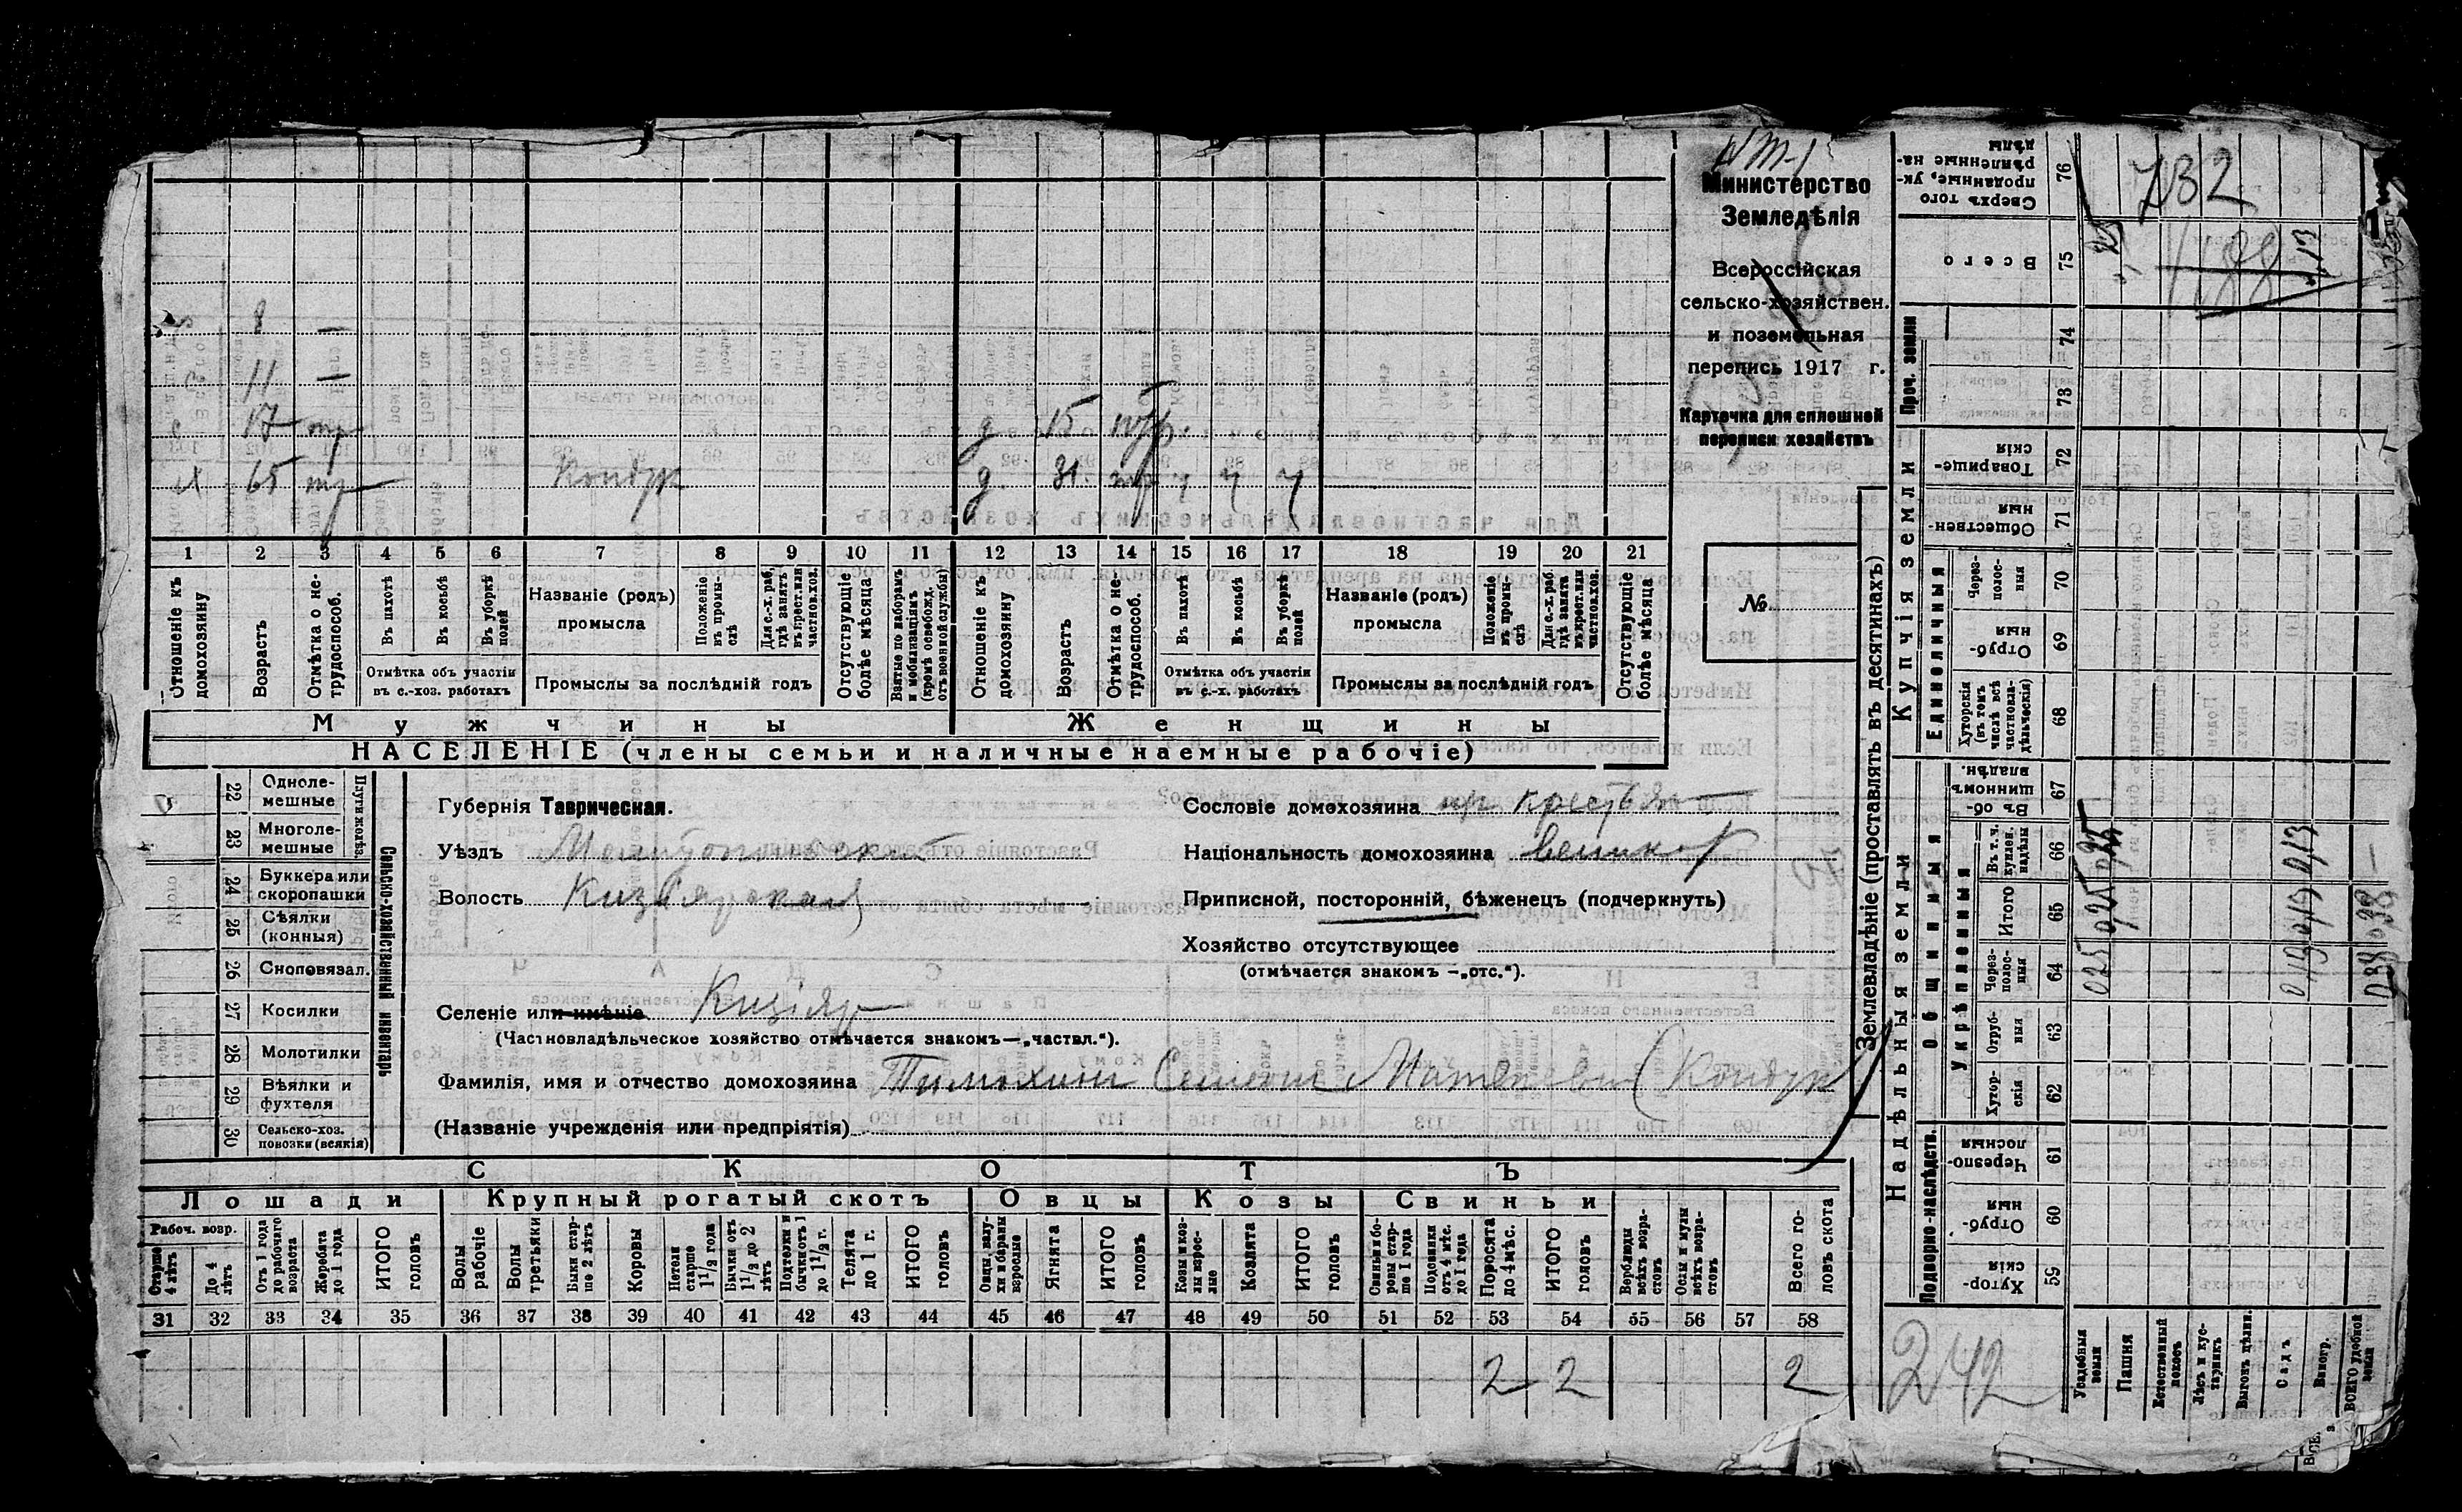 Министерство
Земледѣлія
Всероссійская
сельско-хозяйствен.
и поземельная
перепись 1917 г.
Карточка для сплошней
переписи хозяйствъ
№
8 —
11 —
17 тр
д 15 н/тр.
65 тр
Кондук
д. 31.
1 2 3 4 5 6 7 8 9 10 11 12 13 14 15 16 17 18 19 20 21
Отношеніе къ домохозяину
Возрастъ
Отмѣтка о нетрудоспособ.
Въ пахотѣ
Въ косьбѣ
Въ уборкѣ полей
Отмѣтка объ участіи въ с.-хоз. работахъ
Названіе (родъ) промысла
Положеніе въ промыслѣ
Для с.-х. раб. гдѣ занятъ въ крест. или частнов. хоз.
Промыслы за послѣдній годъ
Отсутствующіе болѣе мѣсяца
Взятые по наборамъ и мобилизаціямъ (кромѣ освобожд. отъ военной службы)
Отношеніе къ домохозяину
Возрастъ
Отмѣтка о нетрудоспособ.
Въ пахотѣ
Въ косьбѣ
Въ уборкѣ полей
Отмѣтка объ участіи въ с.-х. работахъ
Названіе (родъ) промысла
Положеніе въ промыслѣ
Для с.-х. раб. гдѣ занята въ крест. или частнов. хоз.
Промыслы за послѣдній годъ
Отсутствующіе болѣе мѣсяца
Мужчины Женщины
НАСЕЛЕНІЕ (члены семьи и наличные наемные рабочіе)
Сельско-хозяйственный инвентарь
22 Однолемешные
23 Многолемешные
24 Буккера или скоропашки
25 Сѣялки (конныя)
26 Сноповязал.
27 Косилки
28 Молотилки
29 Вѣялки и фухтеля
30 Сельско-хоз. повозки (всякія)
Губернія Таврическая.
Уѣздъ Мелитопольский
Волость Кизіярская
Селеніе или имѣніе Кизіяр
(Частновладѣльческое хозяйство отмѣчается знакомъ—„частвл.“).
Фамилія, имя и отчество домохозяина Тимохин Семен Матвѣевич (Кондук
(Названіе учрежденія или предпріятія)
Сословіе домохозяина
Національность домохозяина великор
Приписной, посторонній, бѣженецъ (подчеркнуть)
Хозяйство отсутствующее
(отмѣчается знакомъ —„отс.“).
СКОТЪ
Лошади Крупный рогатый скотъ Овцы Козы Свиньи
Рабоч. возр.
Старше 4 лѣтъ
До 4 лѣтъ
Отъ 1 года до рабочаго возраста
Жеребята до 1 года
ИТОГО головъ
Волы рабочіе
Волы третьяки
Быки старше 2 лѣтъ
Коровы
Нетели старше 1½ года
Бычки отъ 1½ до 2 лѣтъ
Подтелки и бычки отъ 1 до 1½ г.
Телята до 1 г.
ИТОГО головъ
Овцы, валухи и бараны взрослые
Ягнята
ИТОГО головъ
Козы и козлы взрослые
Козлята
ИТОГО головъ
Свиньи и боровы старше 1 года
Подсвинки отъ 4 мѣс. до 1 года
Поросята до 4 мѣс.
ИТОГО головъ
Верблюды всѣхъ возрастовъ
Ослы и мулы всѣхъ возрастовъ
Всего головъ скота
31 32 33 34 35 36 37 38 39 40 41 42 43 44 45 46 47 48 49 50 51 52 53 54 55 56 57 58
2 2 2
Землевладѣніе (проставлять въ десятинахъ)
Надѣльныя земли
Купчія земли
Проч. земли
Подворно-наслѣдств.
Общинныя
Укрѣпленныя
Единоличныя
76 Сверхъ того проданные, укрѣпленные надѣлы
75 Всего
74
73
72 Товарищескія
71 Общественныя
70 Черезполосныя
69 Отрубныя
68 Хуторскія (въ томъ числѣ всѣ частновладѣльческія)
67 Въ общинномъ владѣн.
66 Въ т. ч. куплен. надѣлы
65 Итого
64 Черезполосныя
63 Отрубныя
62 Хуторскія
61 Черезполосныя
60 Отрубныя
59 Хуторскія
732
242
0,25 0,25
0,13 0,13
0,38 0,38
Усадебныя земли
Пашня
Естественный покосъ
Лѣсъ и кустарникъ
Выгонъ цѣлин.
Садъ
Виногр.
ВСЕГО удобной земли